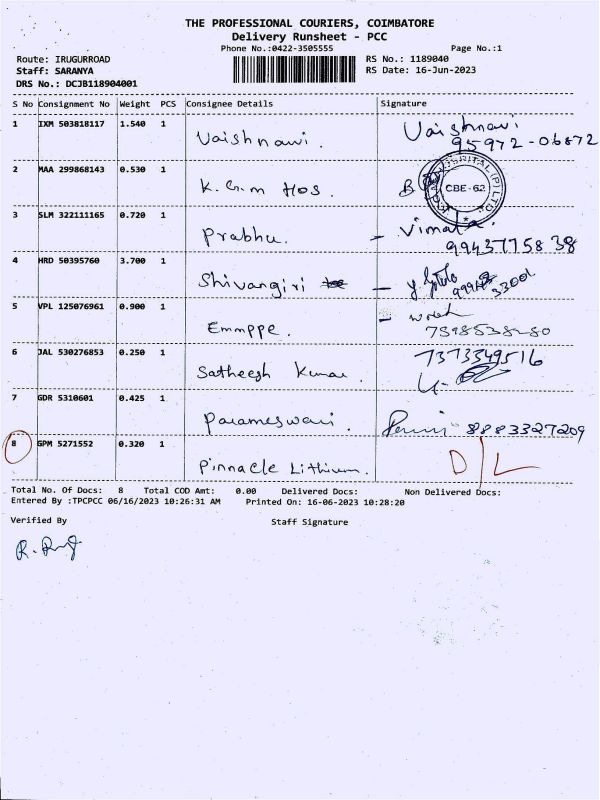 THE PROFESSIONAL COURIERS, COIMBATORE
Delivery Runsheet - PCC
Phone No.:0422-3505555 Page No.:1
Route: IRUGURROAD RS No.: 1189040
Staff: SARANYA RS Date: 16-Jun-2023
DRS No.: DCJB118904001
S No Consignment No Weight PCS Consignee Details Signature
1 IXM 503818117 1.540 1 Vaishnavi. Vaishnavi
95972-06872
2 MAA 299868143 0.530 1 K.G.m Hos. HOSPITAL (P) LTD. CBE-62
3 SLM 322111165 0.720 1 Prabhu. - Vimala.
99437758 38
4 HRD 50395760 3.700 1 Shivangiri
5 VPL 125076961 0.900 1 Emmppe.
7598538280
6 JAL 530276853 0.250 1 Satheesh Kumar. 7373349516
7 GDR 5310601 0.425 1 Parameswari. 8883327209
8 GPM 5271552 0.320 1 Pinnacle Lithium. D/L
Total No. Of Docs: 8 Total COD Amt: 0.00 Delivered Docs: Non Delivered Docs:
Entered By :TPCPCC 06/16/2023 10:26:31 AM Printed On: 16-06-2023 10:28:20
Verified By Staff Signature